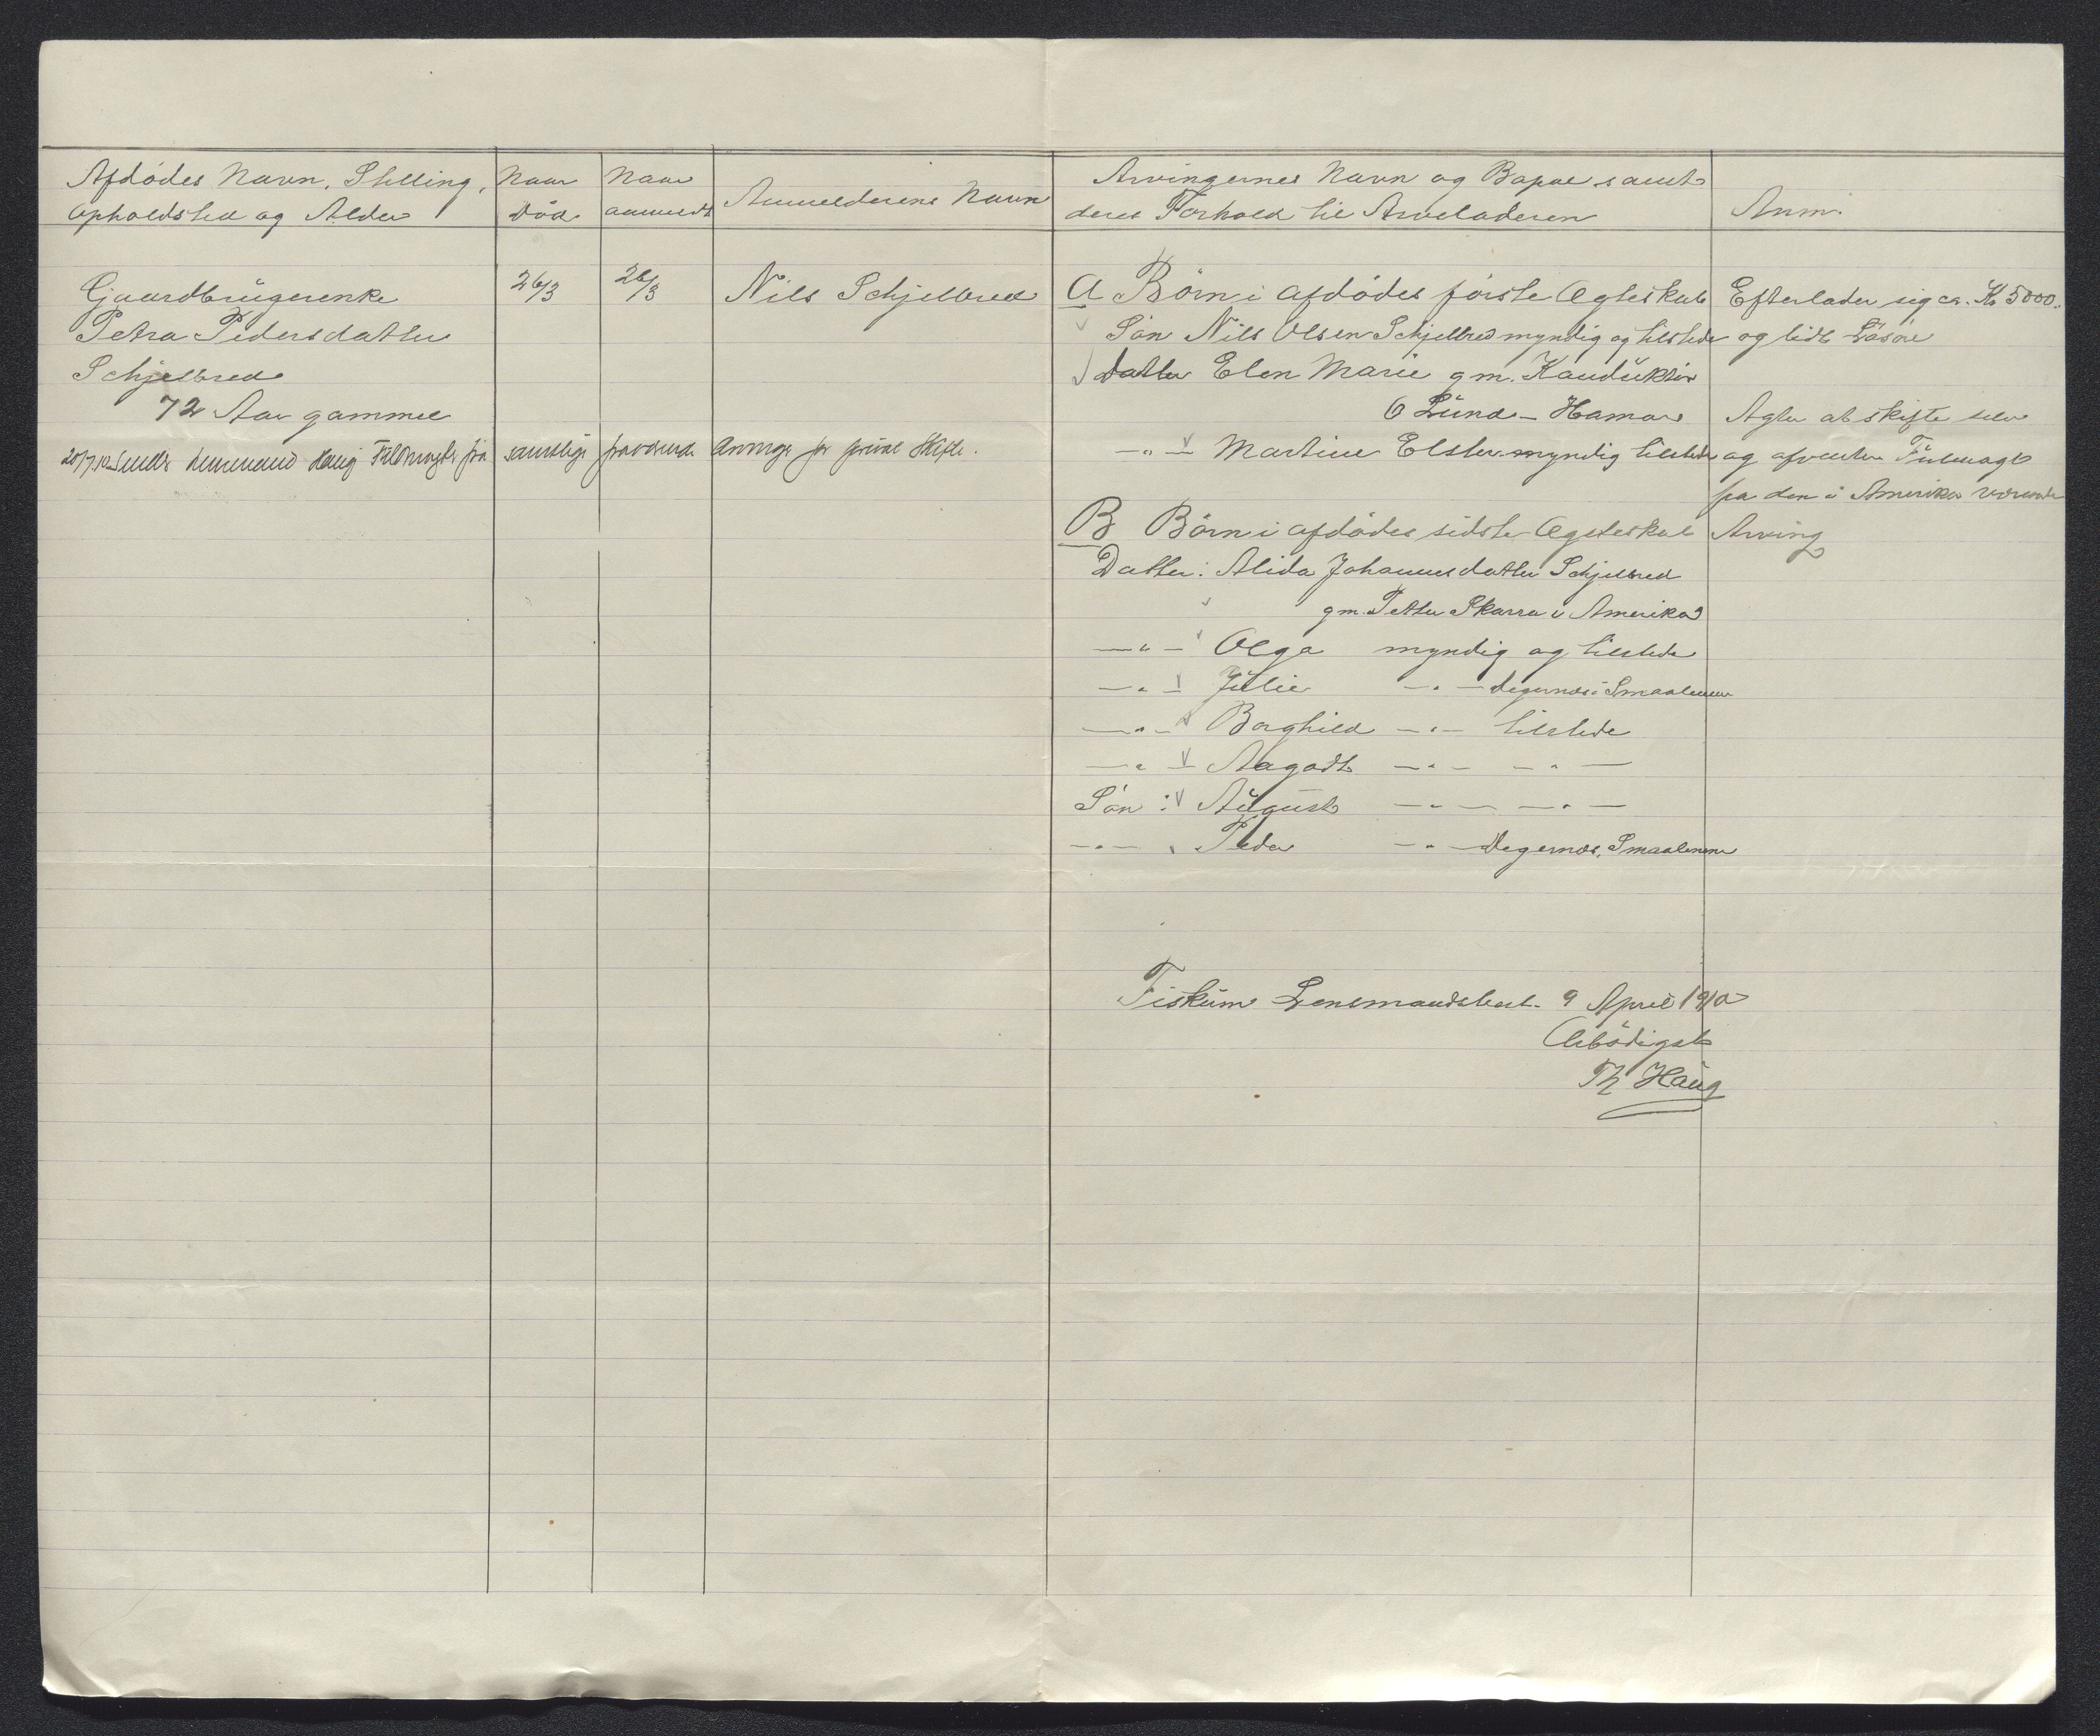 Afdödes Navn, Stilling,
Opholdsted og Alder
Naar
Död
Naar
anmeldt
Anmelderens Navn
Arvingernes Navn og Bopæl samt
deres Forhold til Arveladeren
Anm.
Gaardbrugerenke
Petra Pedersdatter
Schjelbred
72 Aar gammel
26/3
26/3
Nils Schjelbred
20/7 10 Lensmand Haug Fuldmagter fra samtlige fraværende Arvinge for privat Skifte.
A Börn i afdödes förste Ægteskab
Sön Nils Olsen Schjelbred myndig og tilstede
Datter Elen Marie gm. Konduktör
O Lund - Hamar
—"— Martine Elster myndig tilstede
B Börn i afdödes sidste Ægteskab
Datter: Alida Johannesdatter Schjelbred
gm. Petter Skarra i Amerika
—"— Olga myndig og tilstede
—"— Julie —"— Degernæs i Smaalenene
—"— Borghild —"— tilstede
—"— Aagodt —"— —"—
Sön: August —"— —"—
—"— Peder —"— Degernæs, Smaalenene
Efterlader sig ca. Kr 5000.
og lidt Lösöre
Agter at skifte selv
og afventer Fuldmagt
fra den i Amerika værende
Arving
Fiskum Lensmandsbest. 9 April 1910
Ærbödigst
Th Haug